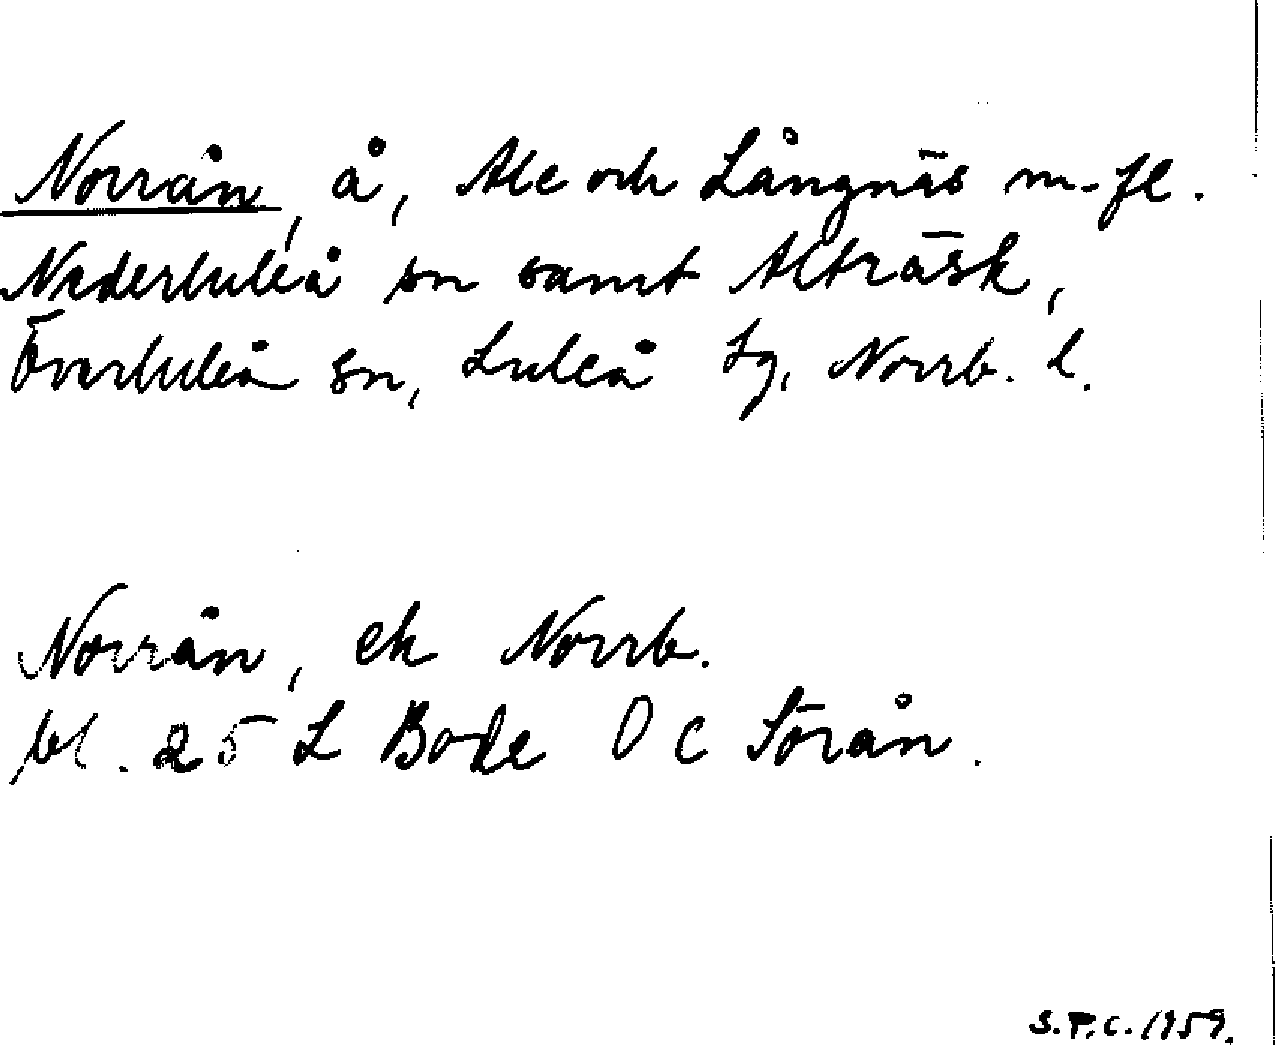 Norrån, å, Ale och Långnäs m. fl.
Nederluleå sn samt Alträsk,
Överluleå sn, Luleå tg, Norrb. l.
Norrån, ek Norrb.
bl. 25 L Bode O C Sörån.
S.P.C. 1959.